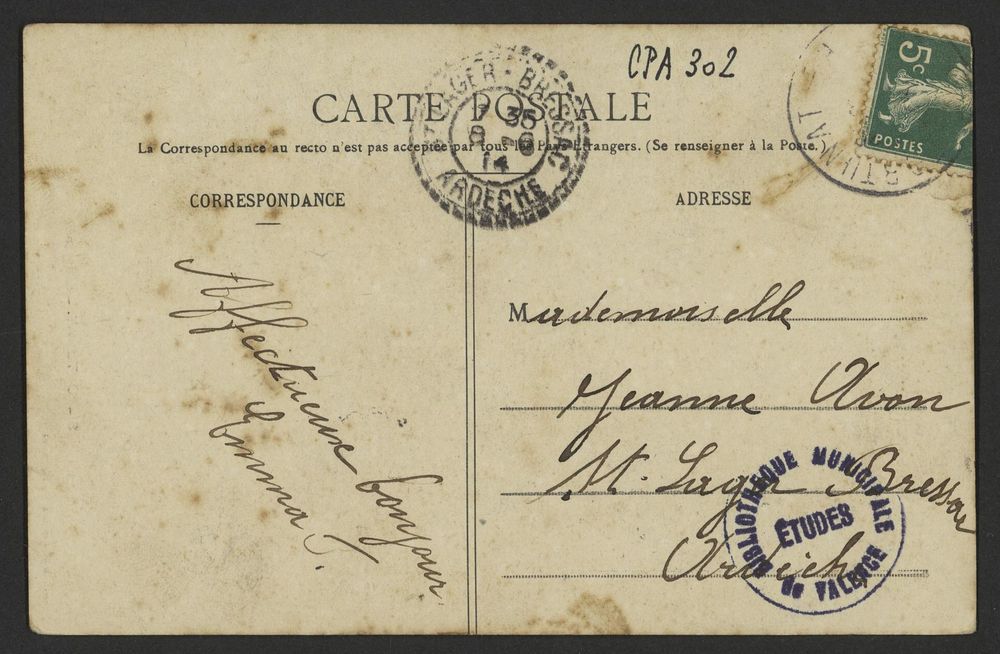 CPA 302
5c
POSTES
CARTE POSTALE
La Correspondance au recto n'est pas acceptée par tous les Pays Etrangers. (Se renseigner à la Poste.)
BRESSAC
7 35
8
14
ARDECHE
CORRESPONDANCE
ADRESSE
Affectueux bonjour.
Emma
Mademoiselle
Jeanne Avon
St. Lager Bressac
Ardèche
BIBLIOTHEQUE MUNICIPALE
ÉTUDES
de VALENCE